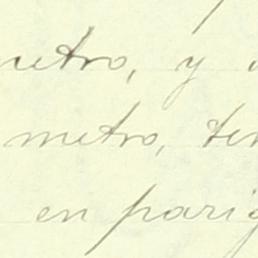 metro, y
metro, ten
en parig